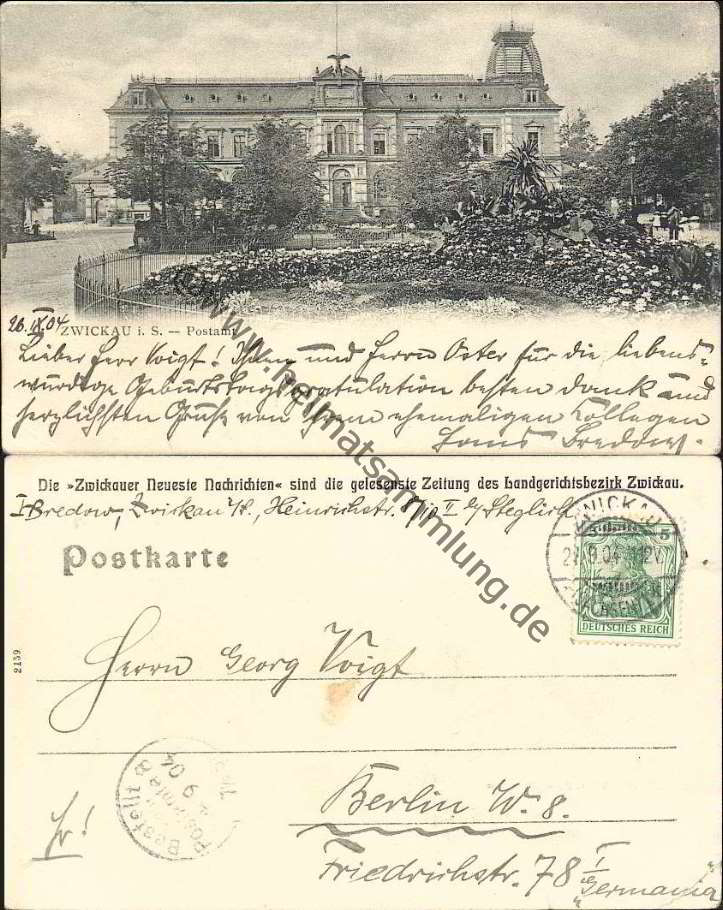 26. IX 04
ZWICKAU i. S. — Postamt
Lieber Herr Voigt! Ihnen und Herrn Oster für die liebens-
würdige Geburtstagsgratulation besten Dank und
herzlichsten Gruß von Ihrem ehemaligen Kollegen
Bredow.
www.heimatsammlung.de
Die »Zwickauer Neueste Nachrichten« sind die gelesenste Zeitung des Landgerichtsbezirk Zwickau.
Bredow, Zwickau i/S., Heinrichstr. 8/10 II b/ Steglich
ZWICKAU
9.04
12V.
(SACHSEN)
5
DEUTSCHES REICH
Postkarte
2159
Herrn Georg Voigt
Bestellt
Postamte 8
9 04
Berlin W. 8.
fr!
Friedrichstr. 78 I
"Germania"